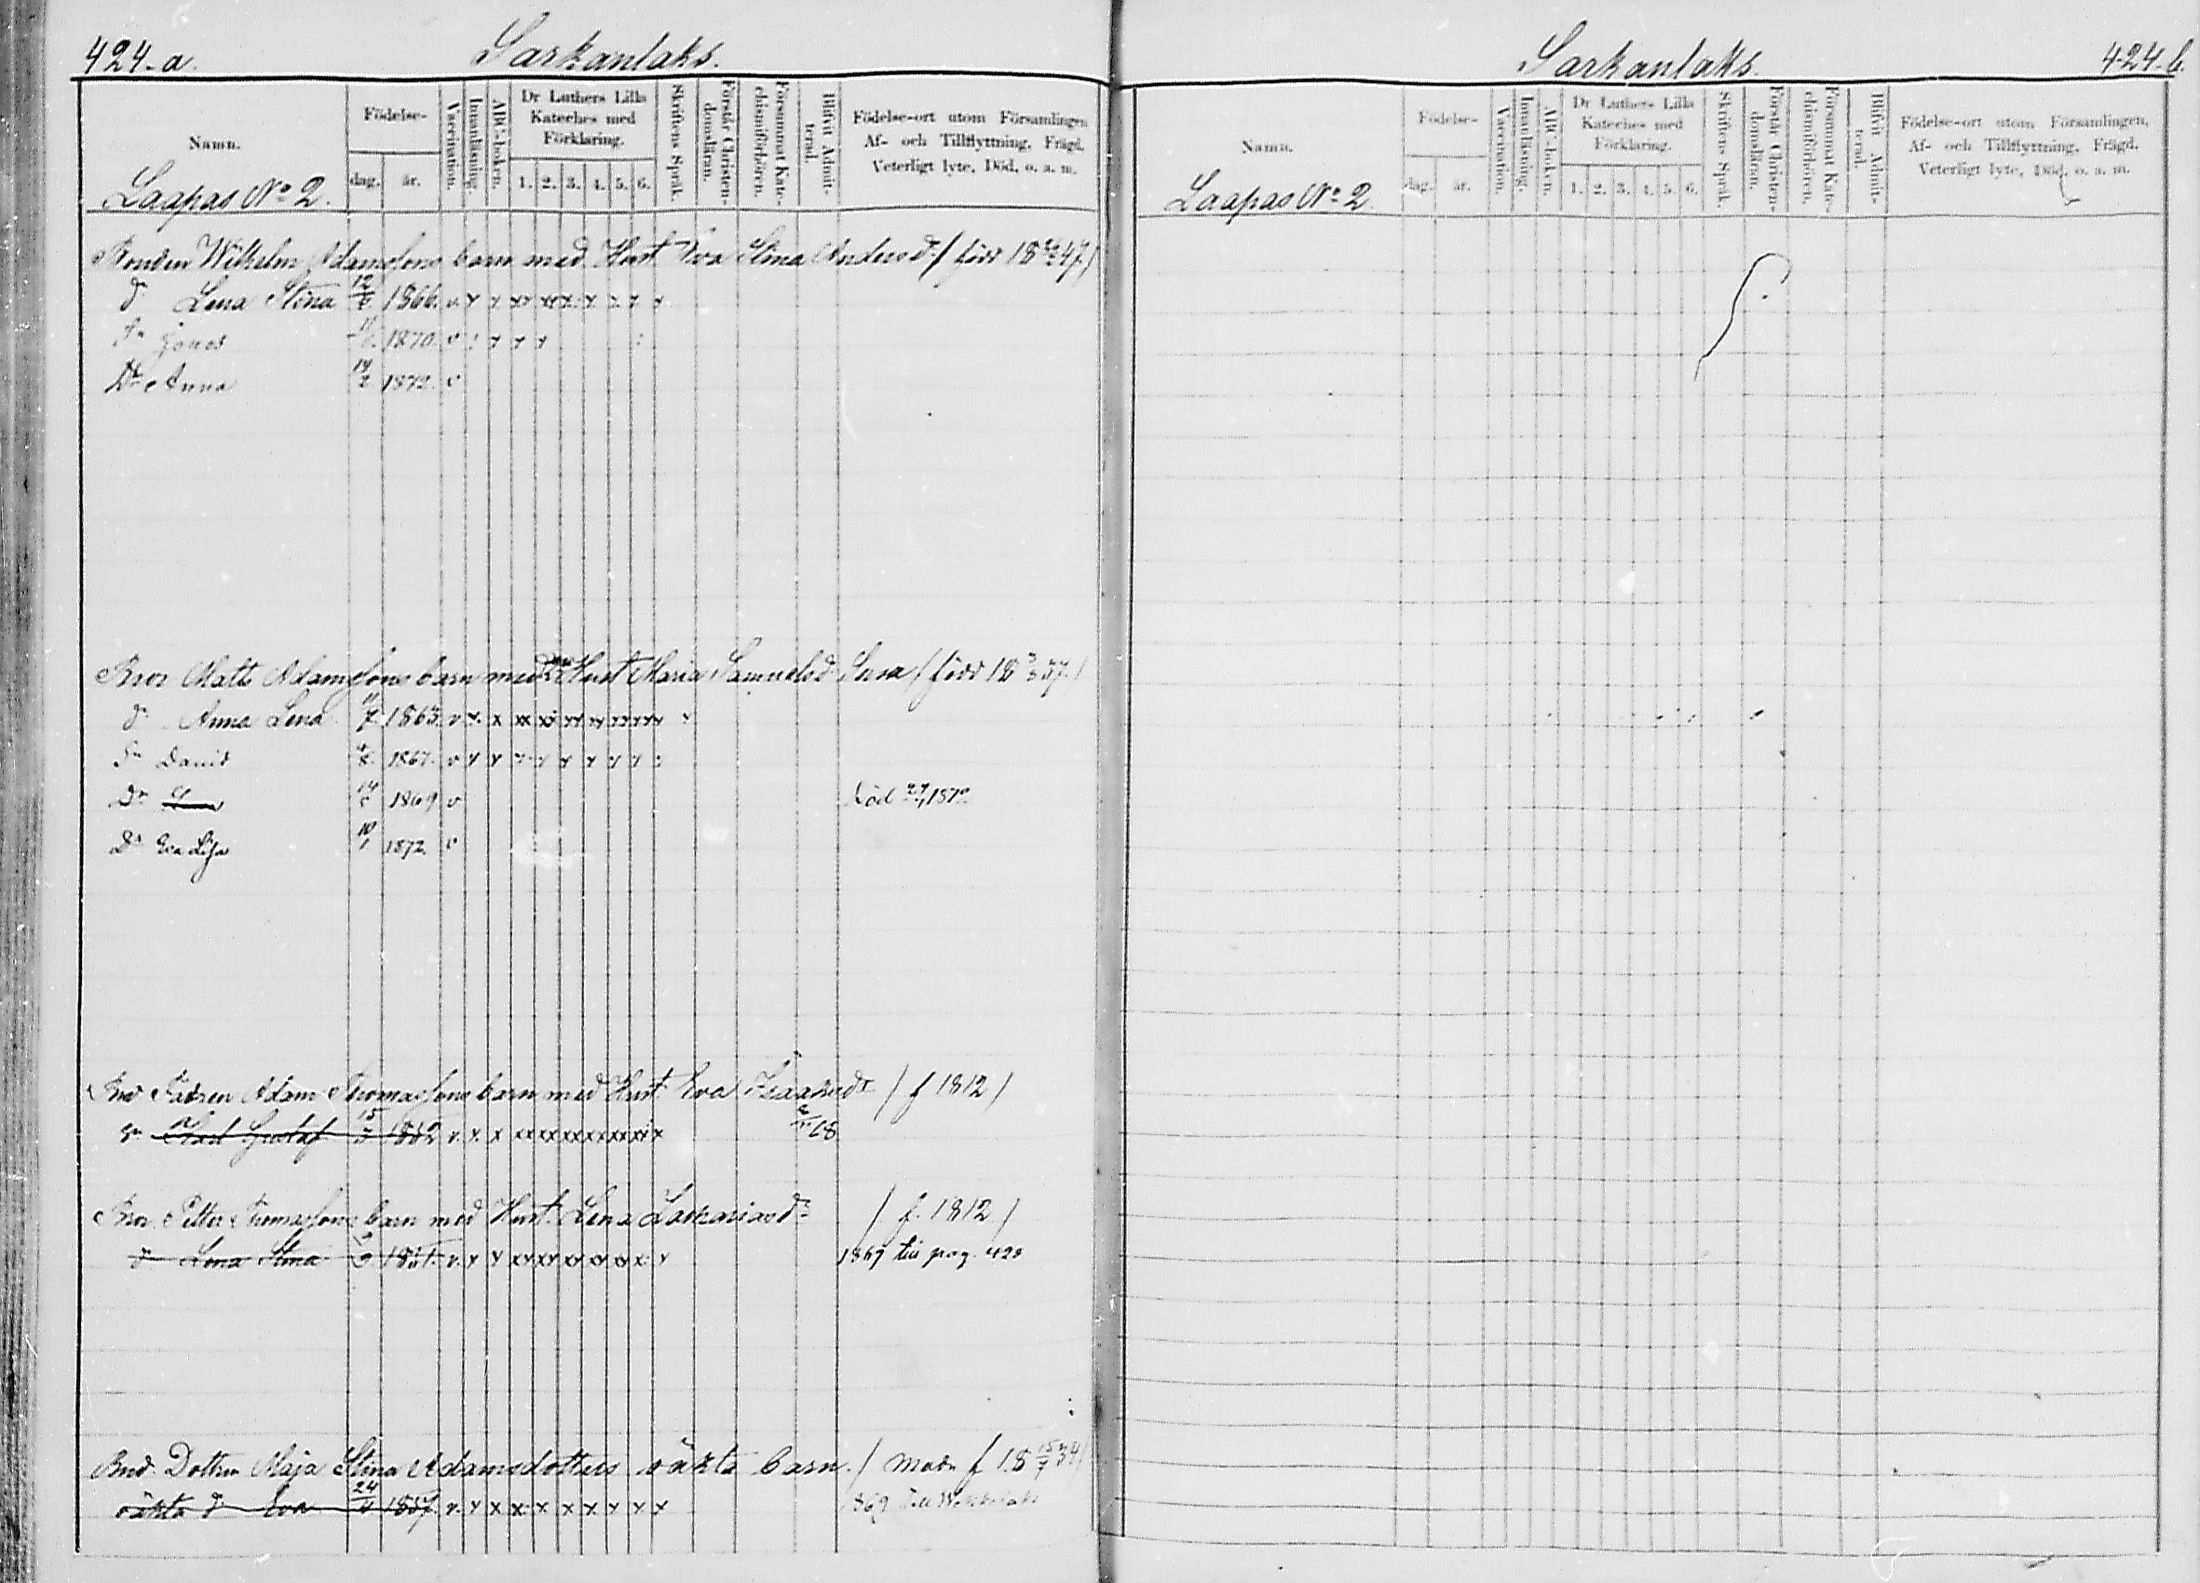 424-a. Sarkanlaks.
Namn. Födelse- dag. år. Vaccination. Innanläsning. ABC-boken. Dr Luthers Lilla Kateches med Förklaring. 1. 2. 3. 4. 5. 6. Skriftens Språk. Förstår Christendomsläran. Försummat Katechismiförhören. Blifvit Admitterad. Födelse-ort utom Församlingen, Af- och Tillflyttning, Frägd, Veterligt lyte, Död, o. a. m.
Laapas No 2.
Bonden Wilhelm Adamssons barn med Hust. Eva Stina Andersd:
d. Lena Stina 1866. v x x xx xx x x x x x
Sn Jonas 1870. v
Dr Anna 14/2 1872. v
Bror Matts Adamssons barn med Hust Maria Samuelsd.
d. Anna Lena 1863. v x. x xx xx xx xx xx xx
Sn David 1867. v x x
Dr 1869 v Död 1870
Dr Eva Lisa 10/1 1872. v
Bd Fadren Adam Thomassons barn med Hust. Eva Isaaksdr / f 1812 /
Sn Karl Gustaf 15 1852 v. x. x xx xx xx xx xx xx x 68
Bror Petter Thomassons barn med Hust. Lena Zachariasdr / f. 1812 /
d Lena Stina 1851. v. x x xx xx xx xx xx x x 1867 till pag. 428
Bnd. Dottren Maja Stina Adamsdotters oäkta barn. / Modr f 18 15/7 34 /
oäkta d Eva 24/4 1857. v. x x x x x x x x x 1869 till
Sarkanlaks. 424-b.
Namn. Födelse- dag. år. Vaccination. Innanläsning. ABC-boken. Dr Luthers Lilla Kateches med Förklaring. 1. 2. 3. 4. 5. 6. Skriftens Språk. Förstår Christendomsläran. Försummat Katechismiförhören. Blifvit Admitterad. Födelse-ort utom Församlingen, Af- och Tillflyttning, Frägd, Veterligt lyte, Död, o. a. m.
Laapas No 2